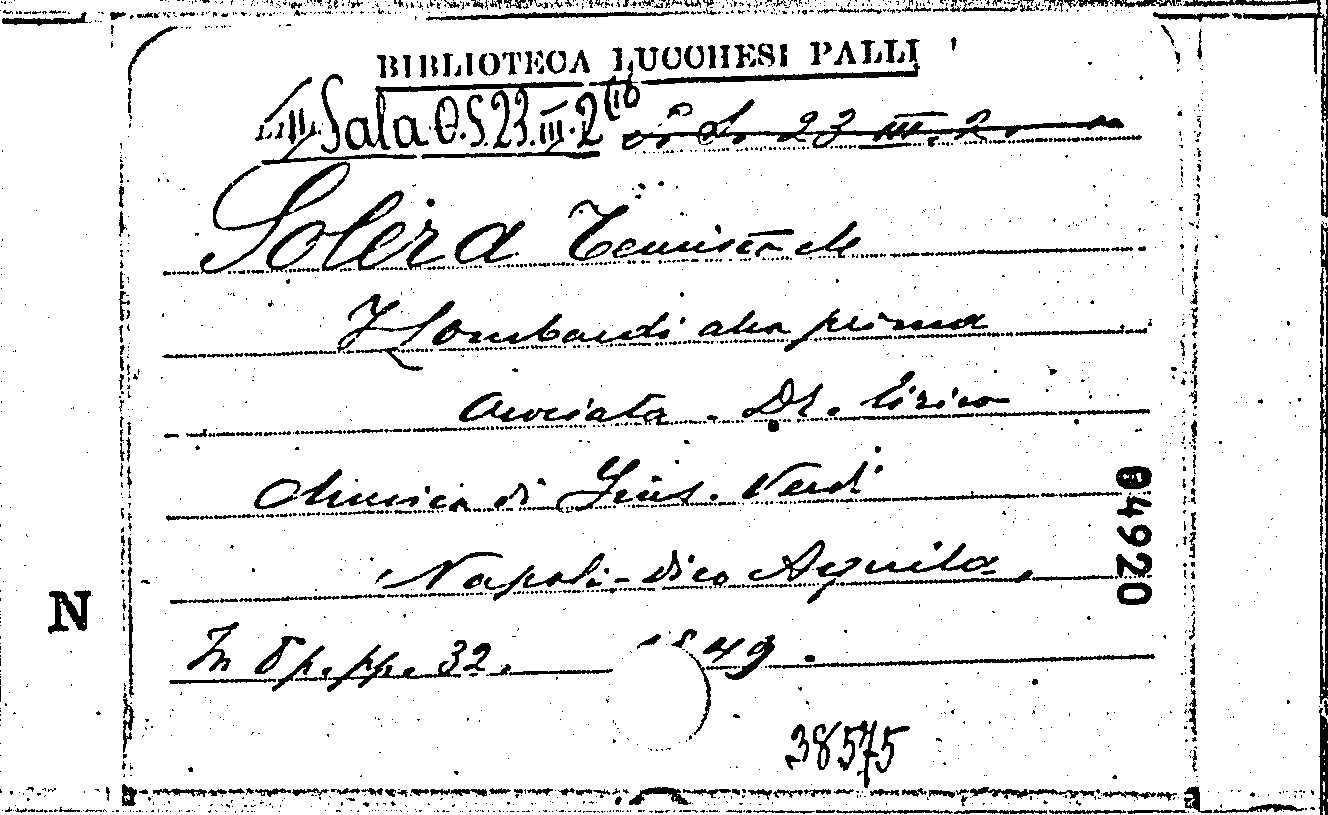 BIBLIOTECA LUCCHESI PALLI
Sala O.S.23.III.2(10
S. 23 III. 2.
Solera Temistocle
I Lombardi alla prima
Crociata. Dr. lirico
Musica di Gius. Verdi
Napoli - Dico Aquila,
In 8 p. pp. 32. 1849.
38575
04920
N